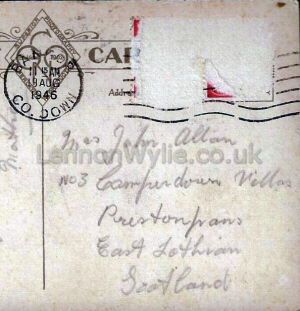 BANGOR
11 15 AM
13 AUG
1946
CO. DOWN
CAR
Addre
Mrs John Allan
No 3 Camperdown Villas
Prestonpans
East Lothian
Scotland
LennonWylie.co.uk